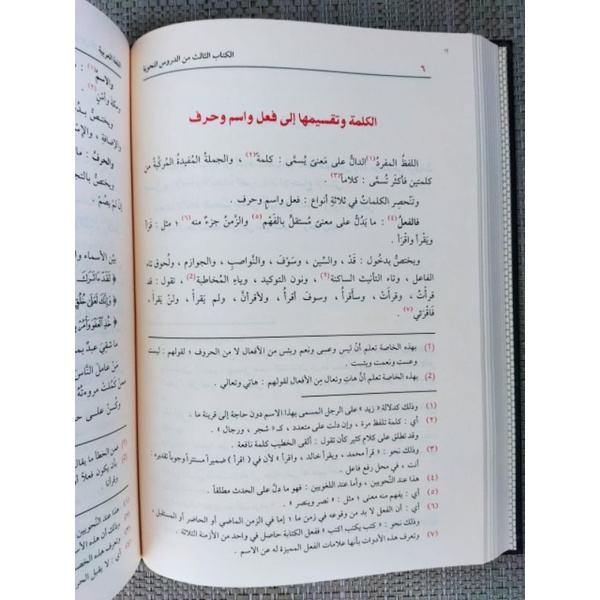 الكتاب الثالث من الدروس النحوية
٦
الكلمة وتقسيمها إلى فعل واسم وحرف
اللفظ المفردُ(١) الدالُّ على معنىً يُسمَّى : كلمةً(٢) ، والجملةُ المفيدةُ المركَّبةُ من
كلمتين فأكثَر تُسمَّى : كلاماً(٣) .
وتنحصِر الكلماتُ في ثلاثةِ أنواع : فعل واسمٍ وحرف .
فالفعلُ(٤) : ما يَدُلُّ على معنىً مستقلٍّ بالفَهْم(٥) والزمنُ جزءٌ منه(٦) ؛ مثل : قَرَأَ
ويَقْرأُ واقْرَأْ .
ويختصُّ بدخُول : قَدْ ، والسِّين ، وسَوْفَ ، والنَّواصِبِ ، والجوازِم ، ولُحوقِ تاء
الفاعل ، وتاء التأنيث الساكنة(1) ، ونون التوكيد ، وياء المُخاطَبة(2) ، تقول : قد
قرأتُ ، وقرأَتْ ، وسأقرأُ ، وسوف أقرأُ ، ولأقرأنَّ ، ولم يَقرأْ ، ولنْ يَقرأَ ،
فاقْرَئي(٧) .
(1) بهذه الخاصة تعلم أنَّ ليس وعسى ونعم وبئس من الأفعال لا من الحروف ؛ لقولهم : ليست
وعست ونعمت وبئست .
(2) بهذه الخاصة تعلم أنَّ هاتِ وتعالَ مِن الأفعال لقولهم : هاتي وتعالي .
(١) وذلك كدلالة « زيد » على الرجل المسمى بهذا الاسم دون حاجة إلى قرينة ما .
(٢) أي : كلمة تلفظ مرة ، وإن دلت على متعدد ، كـ « شجر ، ورجال » .
وقد تطلق على كلام كثير كأن تقول : ألقى الخطيب كلمة نافعة .
(٣) وذلك نحو : « قرأ محمد ، ويقرأ خالد ، واقرأ » لأن في ( اقرأ ) ضميراً مستتراً وجوباً تقديره :
أنت ، في محل رفع فاعل .
(٤) هذا عند النَّحويين ، وأما عند اللغويين : فهو ما دلَّ على الحدث مطلقاً .
(٥) أي : يفهم منه معنى ؛ مثل : « نصر وينصر » .
(٦) أي : أن الفعل لا بد من وقوعه في زمن ما ؛ إما في الزمن الماضي أو الحاضر أو المستقبل ،
وذلك نحو : « كتب يكتب اكتب » ففعل الكتابة حاصل في واحد من الأزمنة الثلاثة .
(٧) وتعرف هذه الأدوات بأنها علامات الفعل المميزة له عن الاسم .